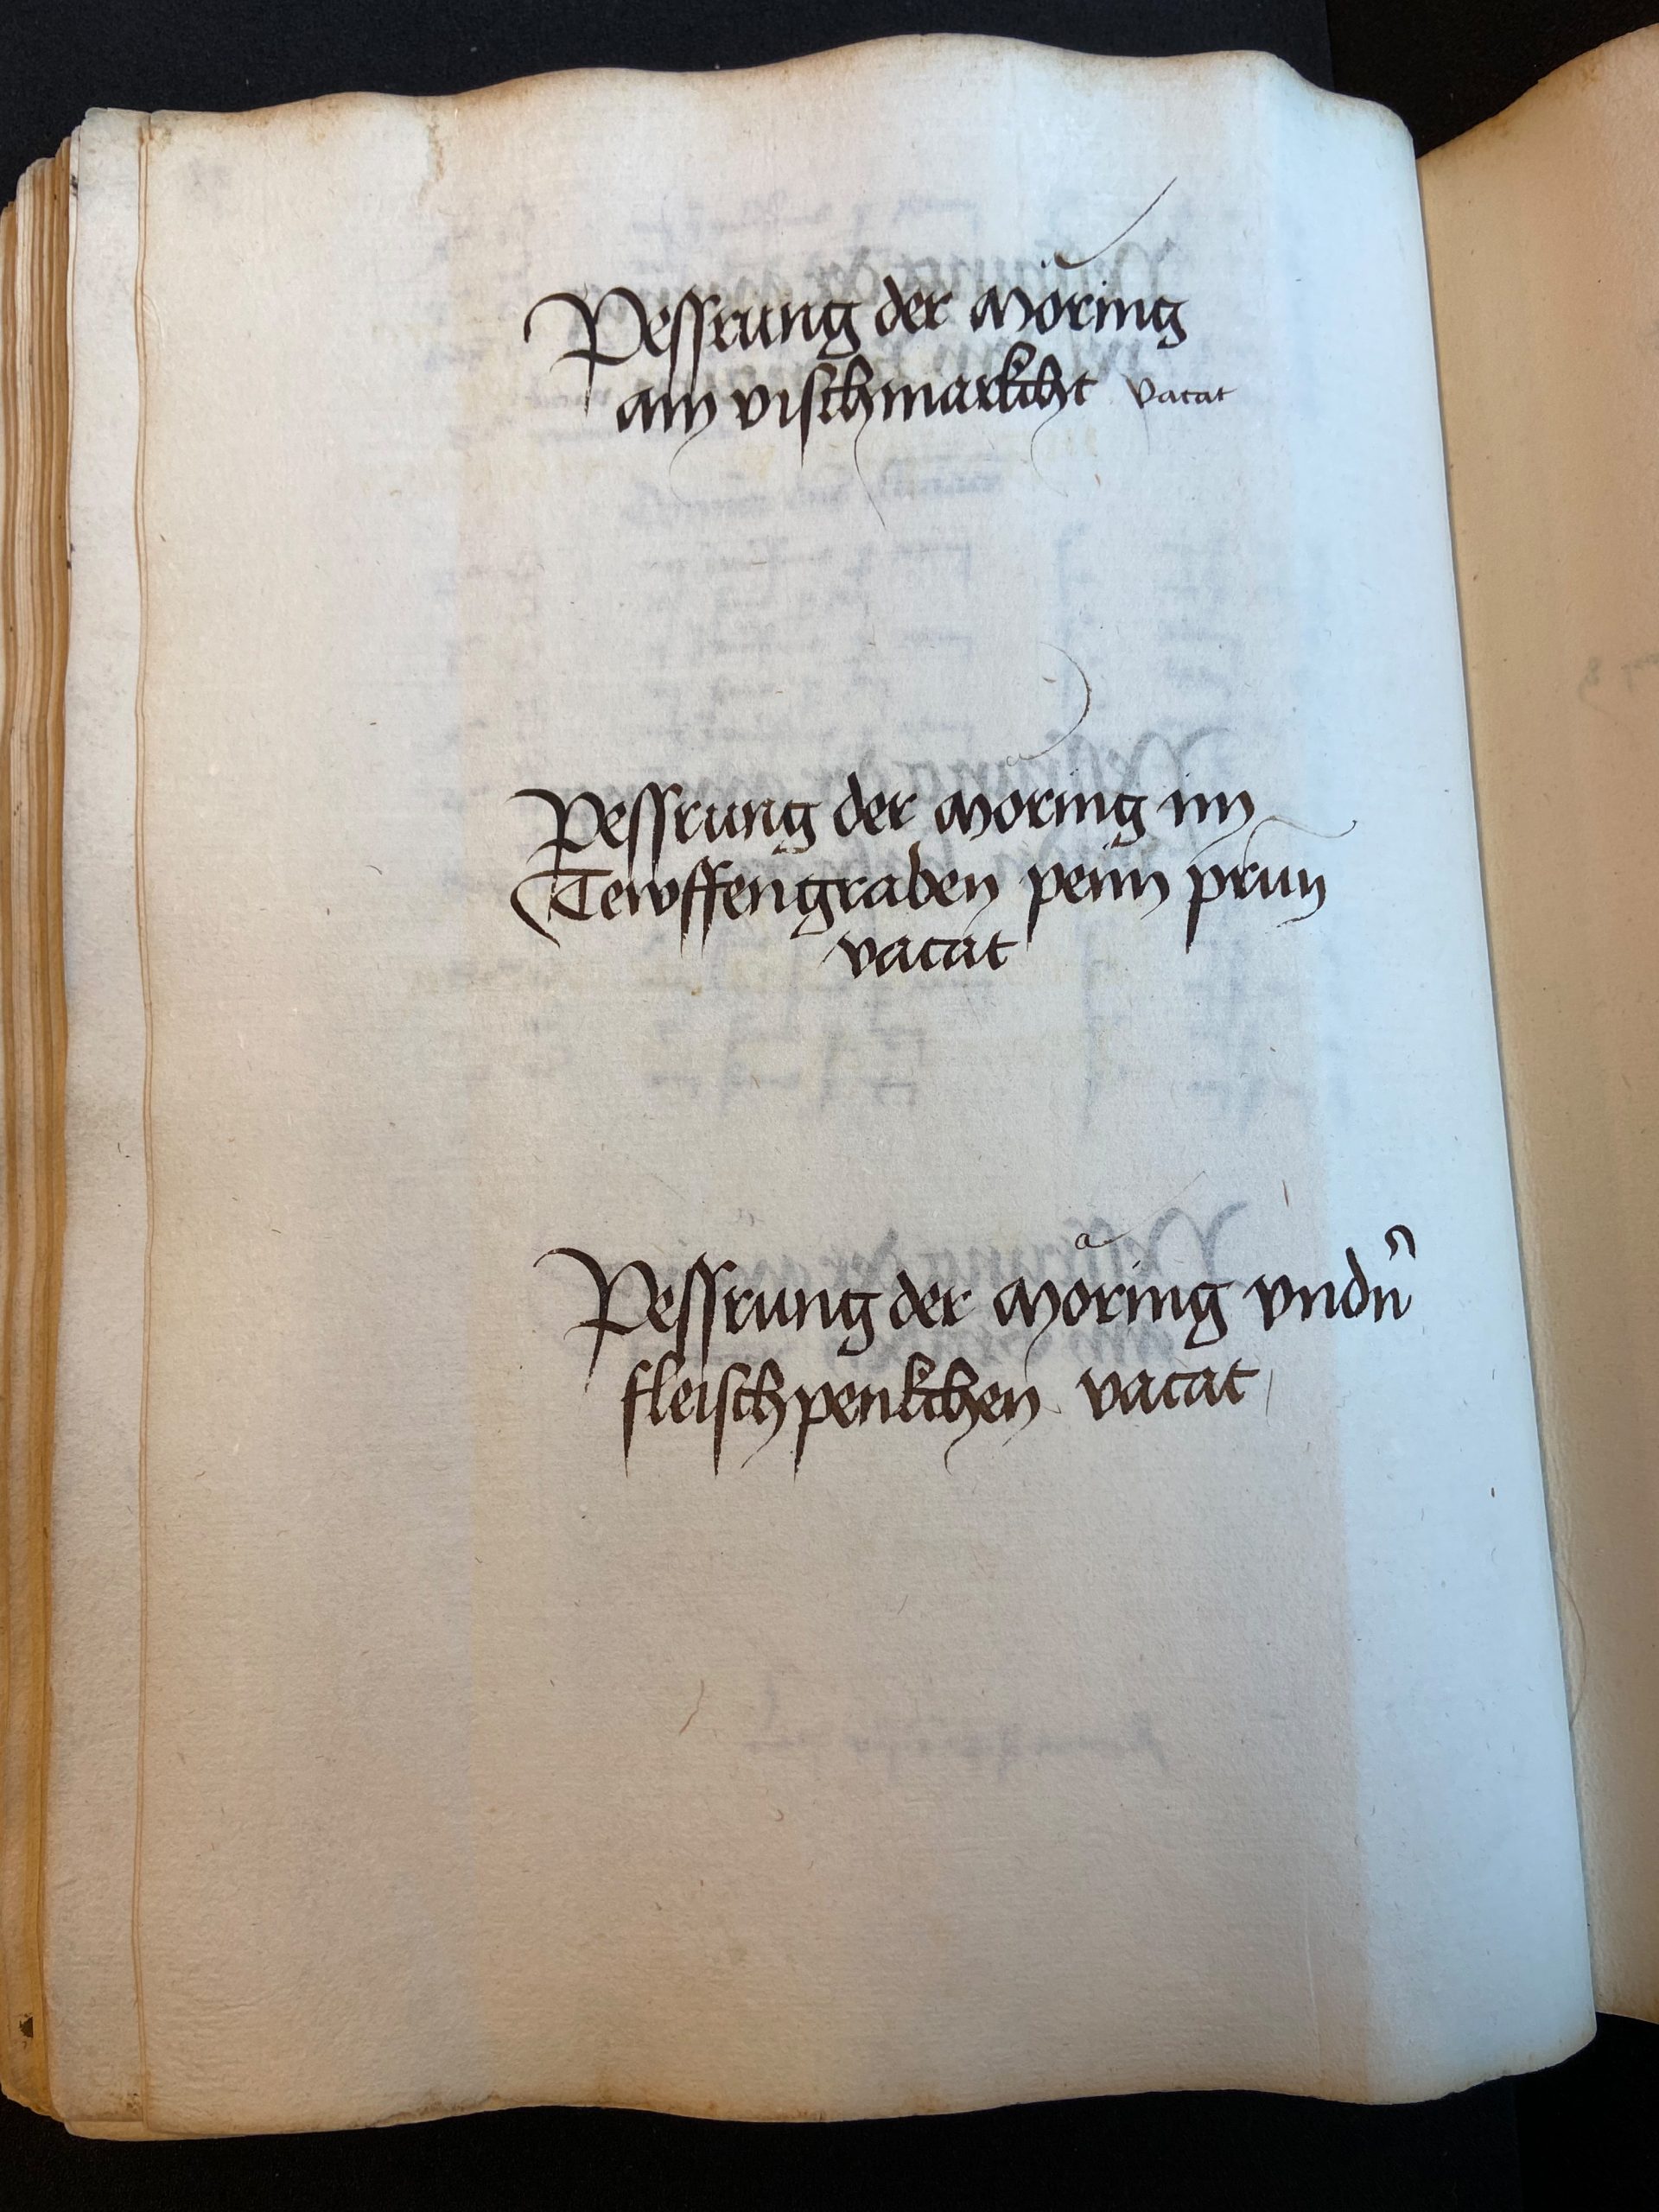 Pessrung der Moͤring
am vischmarkcht vacat
Pessrung der Moͤring im
Tewffengraben peim prun̄
vacat
Pessrung der Moͤring vndn̄
fleischpenkchen vacat